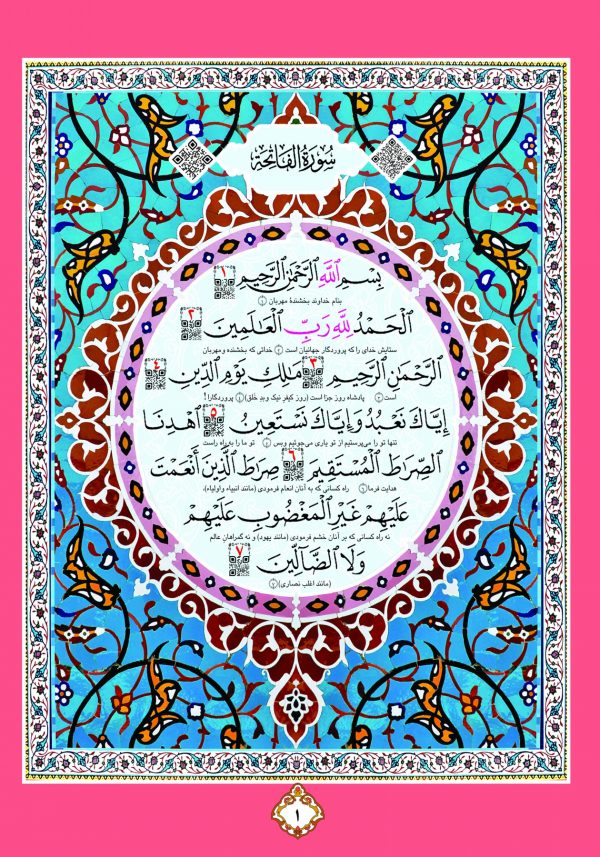 سُورَةُ الْفَاتِحَة
بِسْمِ ٱللَّهِ ٱلرَّحْمَٰنِ ٱلرَّحِيمِ ١
بنام خداوند بخشندهٔ مهربان ۱
ٱلْحَمْدُ لِلَّهِ رَبِّ ٱلْعَٰلَمِينَ ٢
ستایش خدای را که پروردگار جهانیان است ۲ خدائی که بخشنده ومهربان
ٱلرَّحْمَٰنِ ٱلرَّحِيمِ ٣ مَٰلِكِ يَوْمِ ٱلدِّينِ ٤
است ۳ پادشاه روز جزا است (روز کیفر نیک وبدِ خلق) ۴ پروردگارا!
إِيَّاكَ نَعْبُدُ وَإِيَّاكَ نَسْتَعِينُ ٥ ٱهْدِنَا
تنها تو را می‌پرستیم از تو یاری می‌جوئیم وبس ۵ تو ما را به راه راست
ٱلصِّرَٰطَ ٱلْمُسْتَقِيمَ ٦ صِرَٰطَ ٱلَّذِينَ أَنْعَمْتَ
هدایت فرما ۶ راه کسانی که به آنان انعام فرمودی (مانند انبیاء واولیاء)،
عَلَيْهِمْ غَيْرِ ٱلْمَغْضُوبِ عَلَيْهِمْ
نه راه کسانی که بر آنان خشم فرمودی (مانند یهود) و نه گمراهانِ عالم
وَلَا ٱلضَّآلِّينَ ٧
(مانند اغلب نصاری) ۷
١